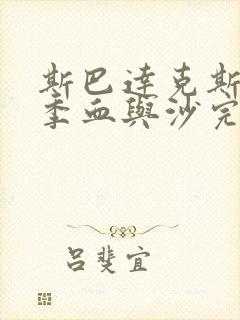 斯巴達克斯
季血與沙完
呂斐宜